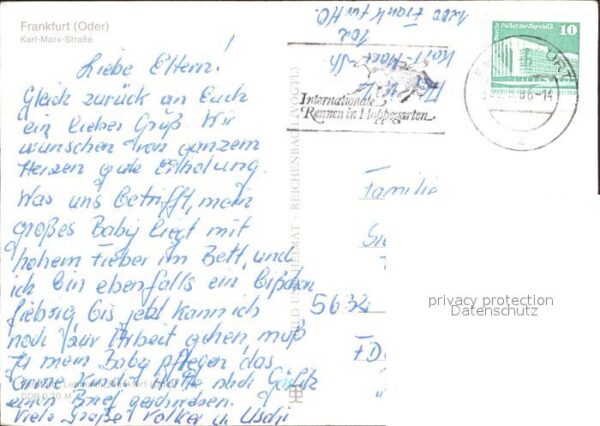 Frankfurt (Oder)
Karl-Marx-Straße
Liebe Eltern!
Gleich zurück an Euch
ein lieber Gruß. Wir
wünschen von ganzem
Herzen gute Erholung.
Was uns betrifft, mein
großes Baby liegt mit
hohem Fieber im Bett, und
ich bin ebenfalls ein bißchen
fiebrig bis jetzt kann ich
noch zur Arbeit gehen, muß
ja mein Baby pflegen, das
arme Kind. Hatte
einen Brief geschrieben.
Viele Grüße Volker u. Uschi
DDR 0,20 M
BILD UND HEIMAT · REICHENBACH (VOGTL)
Frankfurt/O.
102
Karl Marx
Berlin, Palast der Republik
10
Internationale
Rennen in Hoppegarten
Familie
5632
privacy protection
Datenschutz